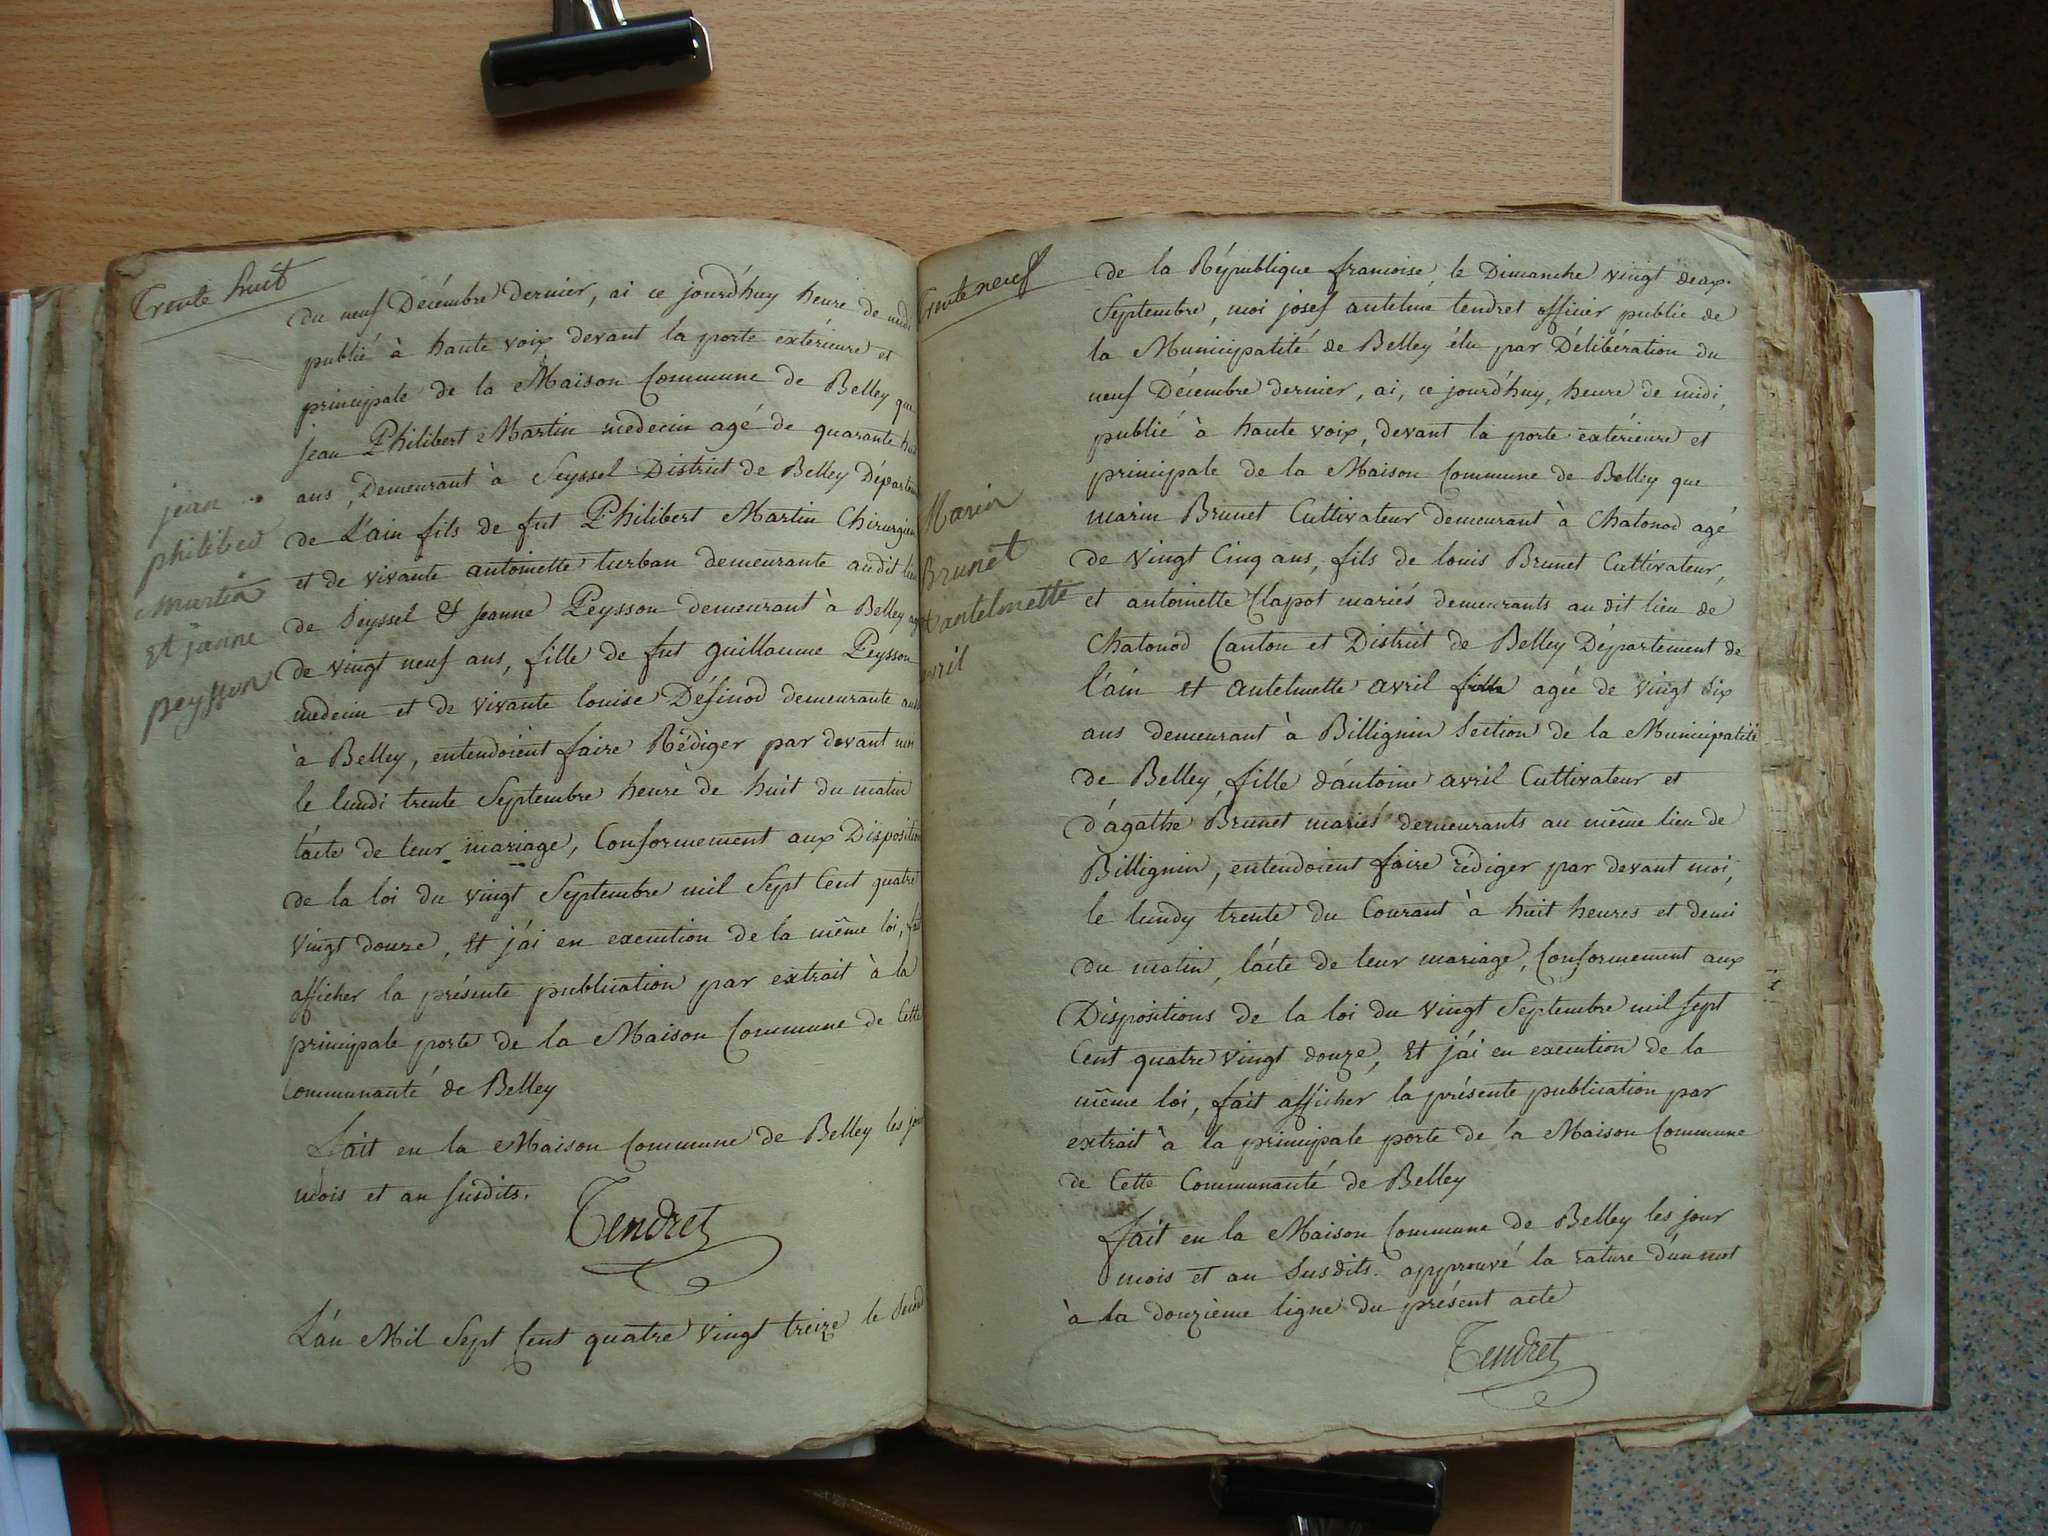 trente huit
du neuf Décembre dernier, ai ce jourd'huy heure de midi
publié à haute voix devant la porte extérieure et
principale de la Maison Commune de Belley que
jean Philibert Martin medecin agé de quarante huit
ans, Demeurant à Seyssel District de Belley Départem
de L'ain fils de fut Philibert Martin Chirurgien
et de vivante antoinette turban demeurante audit lieu
de Seyssel & jeanne Peysson demeurant à Belley agé
de vingt neuf ans, fille de fut guillaume Peysson
medecin et de vivante louise Définod demeurante aussi
à Belley, entendoient faire Rédiger par devant moi
le lundi trente Septembre heure de huit du matin
l'acte de leur mariage, Conformement aux Disposition
de la loi du vingt Septembre mil Sept Cent quatre
vingt douze, Et j'ai en execution de la même loi, fait
afficher la présente publication par extrait à la
principale porte de la Maison Commune de Cette
Communauté de Belley
Fait en la Maison Commune de Belley les jour
mois et an susdits.
Tendret
L'an Mil Sept Cent quatre vingt treize le Second
jean
philibert
martin
et jeanne
peysson
trente neuf
de la République francoise, le Dimanche vingt deux
Septembre, moi josef antelme tendret officier public de
la Municipalité de Belley élu par Délibération du
neuf Décembre dernier, ai, ce jourd'huy, heure de midi,
publié à haute voix, devant la porte extérieure et
principale de la Maison Commune de Belley que
marin Brunet Cultivateur demeurant à Chatonod agé
de vingt Cinq ans, fils de louis Brunet Cultivateur,
et antoinette Clapot mariés demeurants au dit lieu de
Chatonod Canton et District de Belley Département de
l'ain et antelmette avril fille agée de vingt six
ans demeurant à Billignin Section de la Municipalité
de Belley, fille d'antoine avril Cultivateur et
d'agathe Brunet mariés demeurants au même lieu de
Billignin, entendoient faire rédiger par devant moi,
le lundy trente du Courant à huit heures et demi
du matin, l'acte de leur mariage, Conformement aux
Dispositions de la loi du vingt Septembre mil sept
Cent quatre vingt douze, Et j'ai en execution de la
même loi, fait afficher la présente publication par
extrait à la principale porte de la Maison Commune
de Cette Communauté de Belley
fait en la Maison Commune de Belley les jour
mois et an Susdits. approuvé la rature d'un mot
à la douzieme ligne du présent acte
Tendret
Marin
Brunet
et antelmette
avril